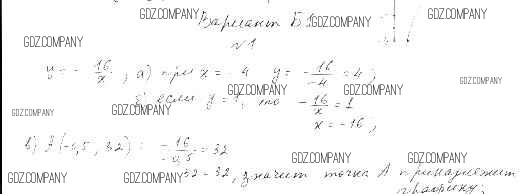 GDZ.COMPANY GDZ.COMPANY GDZ.COMPANY
Вариант Б1
GDZ.COMPANY GDZ.COMPANY GDZ.COMPANY
№1
y = - 16/x ; а) при x = -4 y = - 16/-4 = 4;
GDZ.COMPANY GDZ.COMPANY GDZ.COMPANY
если y = 1, то - 16/x = 1
GDZ.COMPANY GDZ.COMPANY
x = -16;
в) A(-0,5; 32): - 16/-0,5 = 32
GDZ.COMPANY GDZ.COMPANY
32 = 32, значит точка A принадлежит
GDZ.COMPANY GDZ.COMPANY GDZ.COMPANY
графику.